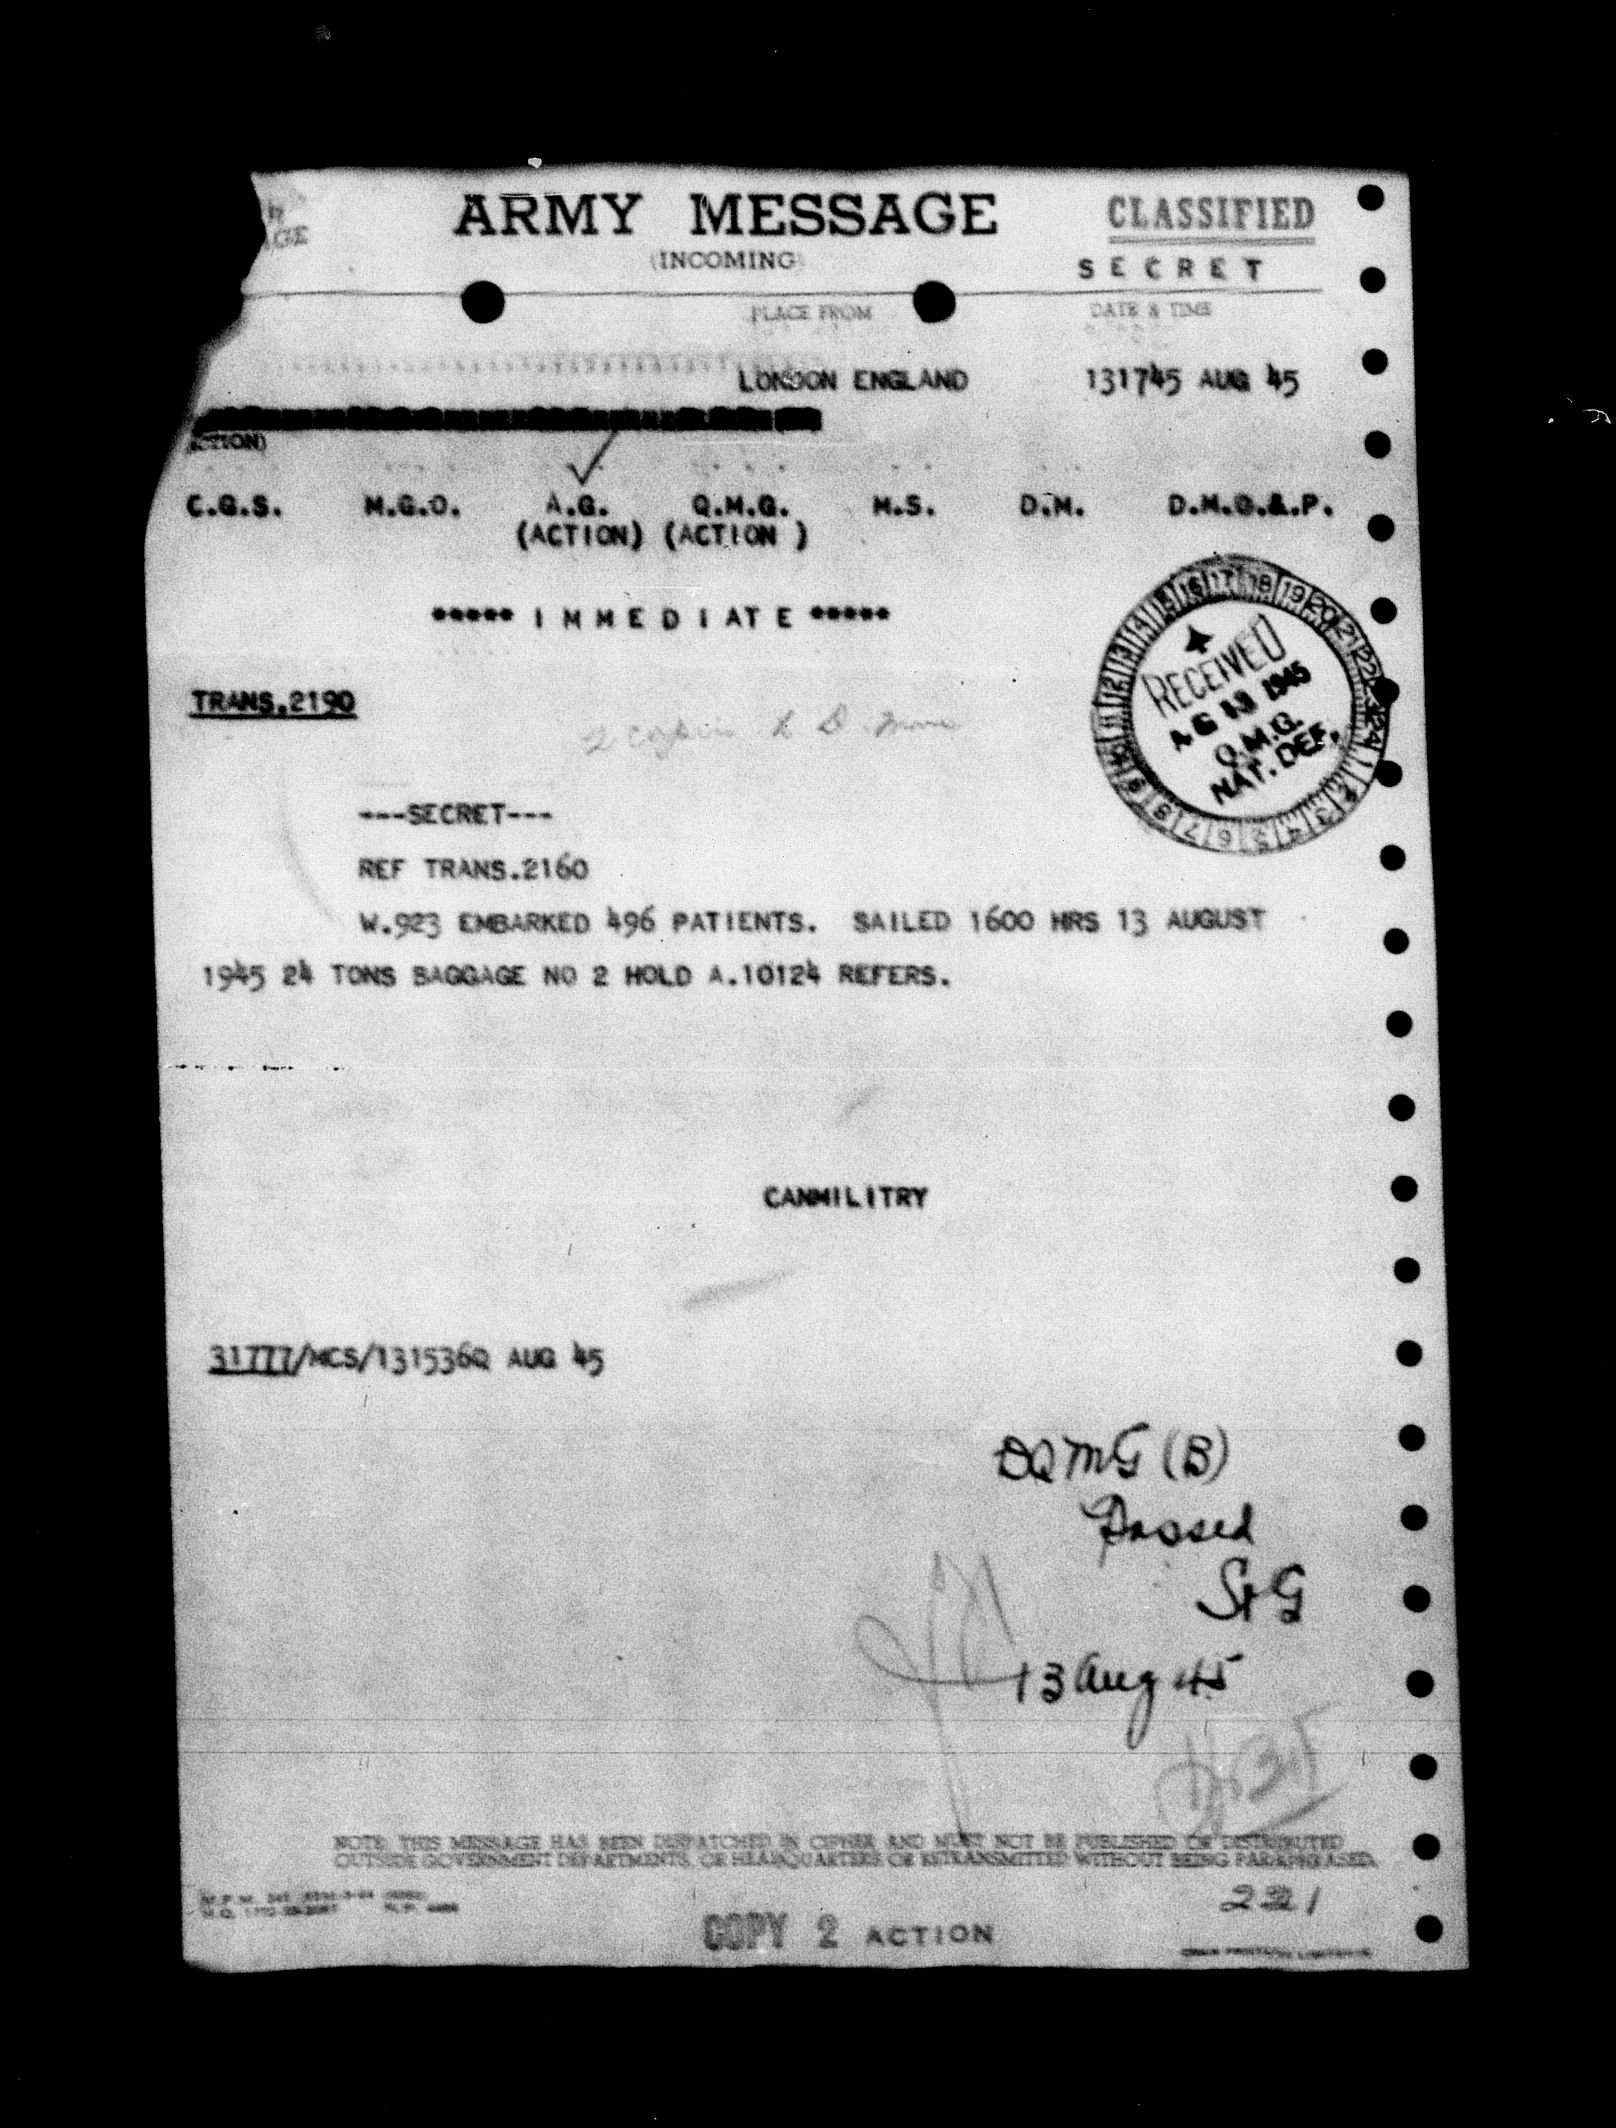 ARMY MESSAGE
(INCOMING)
CLASSIFIED
SECRET
PLACE FROM
DATE & TIME
LONDON ENGLAND
131745 AUG 45
C.G.S. M.G.O. A.G. Q.M.G. M.S. D.M. D.M.O.&.P.
(ACTION) (ACTION )
***** I M M E D I AT E *****
TRANS.2190
RECEIVED
1945
Q.M.G.
NAT. DEF.
---SECRET---
REF TRANS.2160
W.923 EMBARKED 496 PATIENTS. SAILED 1600 HRS 13 AUGUST
1945 24 TONS BAGGAGE NO 2 HOLD A.10124 REFERS.
CANMILITRY
31777/MCS/131536Q AUG 45
DQMG (B)
Passed
StG
13 Aug 45
NOTE: THIS MESSAGE HAS BEEN DESPATCHED IN CIPHER AND MUST NOT BE PUBLISHED OR DISTRIBUTED
OUTSIDE GOVERNMENT DEPARTMENTS, OR HEADQUARTERS OR RETRANSMITTED WITHOUT BEING PARAPHRASED.
221
COPY 2 ACTION